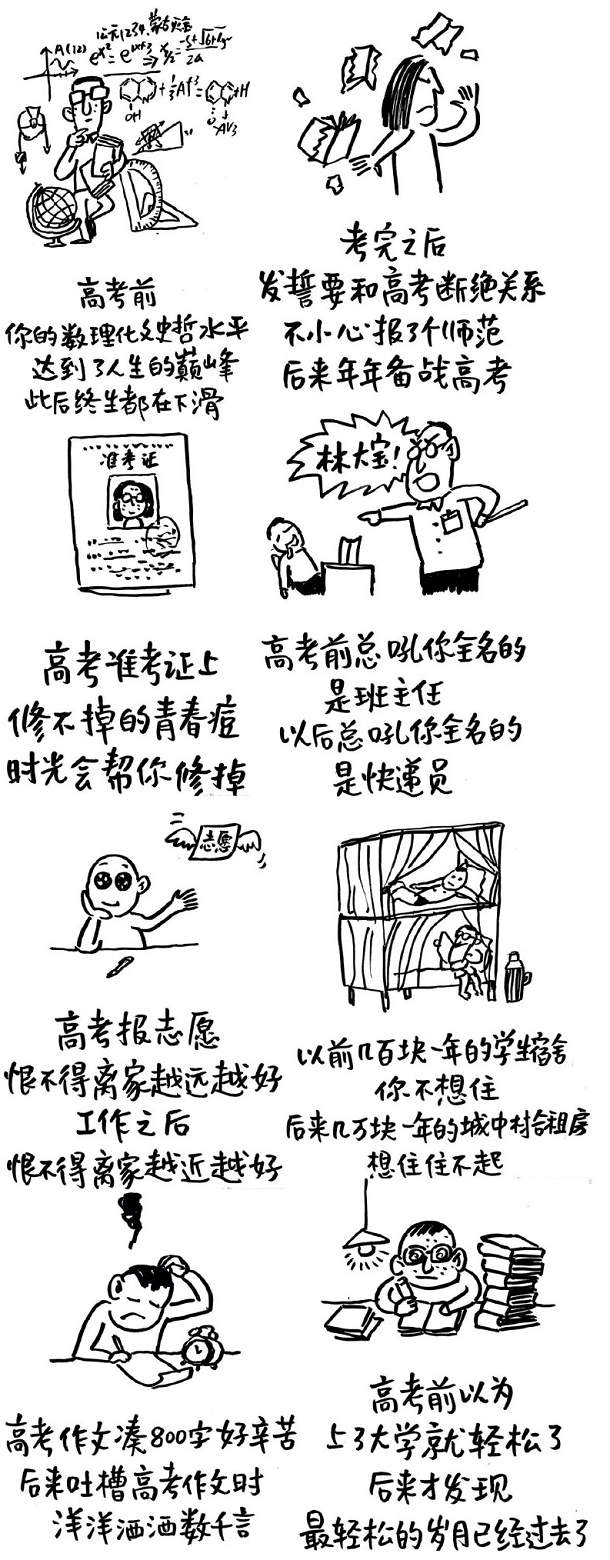 公元1234,蒙古灭金
A(12)
高考前
你的数理化文史哲水平
达到了人生的巅峰
此后终生都在下滑
考完之后
发誓要和高考断绝关系
不小心报了个师范
后来年年备战高考
准考证
高考准考证上
修不掉的青春痘
时光会帮你修掉
林大宝!
高考前总吼你全名的
是班主任
以后总吼你全名的
是快递员
志愿
高考报志愿
恨不得离家越远越好
工作之后
恨不得离家越近越好
以前几百块一年的学生宿舍
你不想住
后来几万块一年的城中村合租房
想住住不起
高考作文凑800字好辛苦
后来吐槽高考作文时
洋洋洒洒数千言
高考前以为
上了大学就轻松了
后来才发现
最轻松的岁月已经过去了